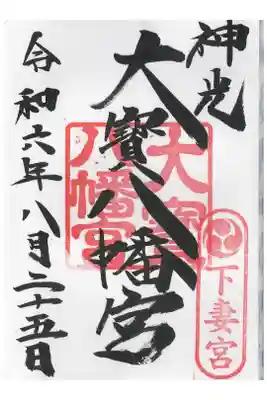 神光
大寳八幡宮
大寳八幡宮
下妻宮
令和六年八月二十五日